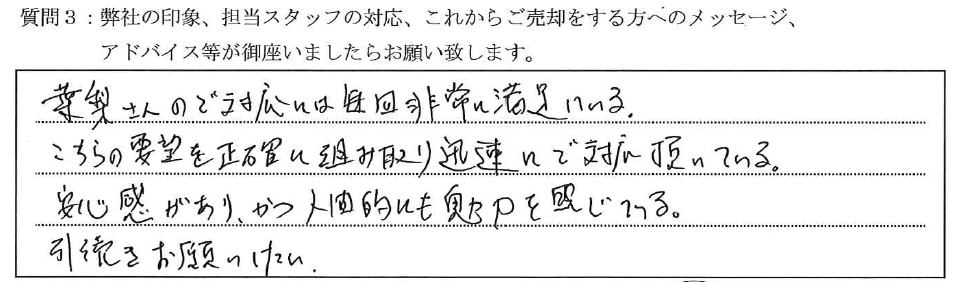 質問3：弊社の印象、担当スタッフの対応、これからご売却をする方へのメッセージ、
アドバイス等が御座いましたらお願い致します。
葉梨さんのご対応には毎回非常に満足している。
こちらの要望を正確に組み取り迅速にご対応頂いている。
安心感があり、かつ人間的にも魅力を感じている。
引続きお願いしたい。